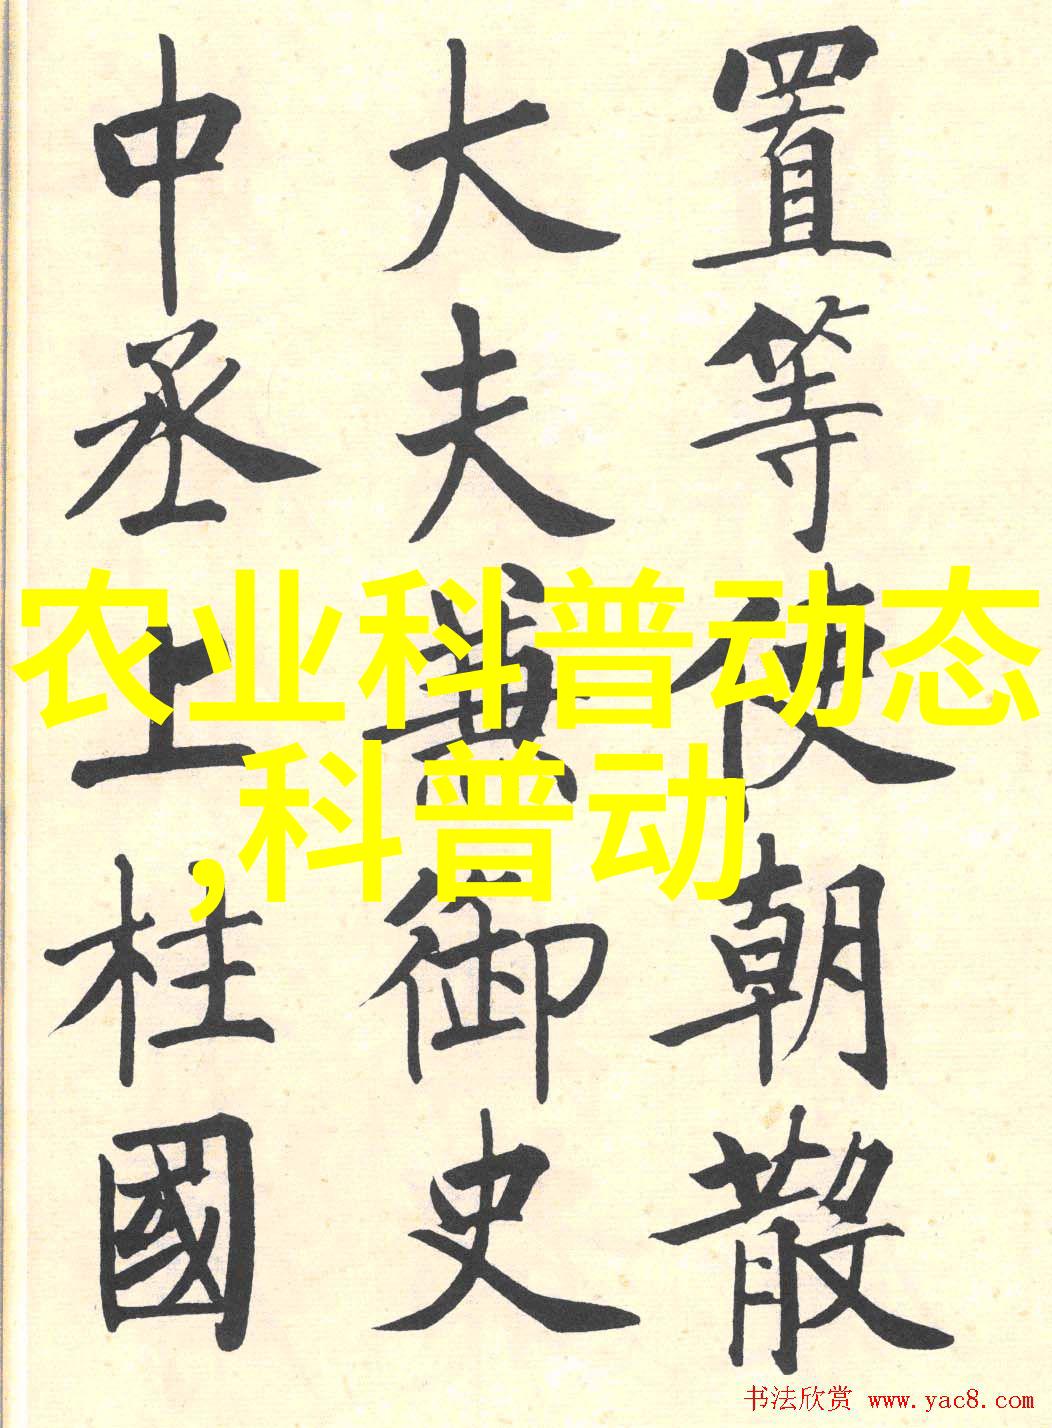 置等使朝散
大夫兼御史
中丞上柱國
农业科普动态
,科普动
书法欣赏 www.yac8.com